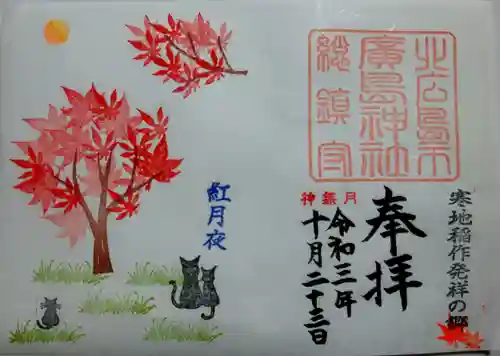 北広島市
廣島神社
総鎮守
寒地稲作発祥の郷
奉拝
神無月
令和三年
十月二十三日
紅月夜